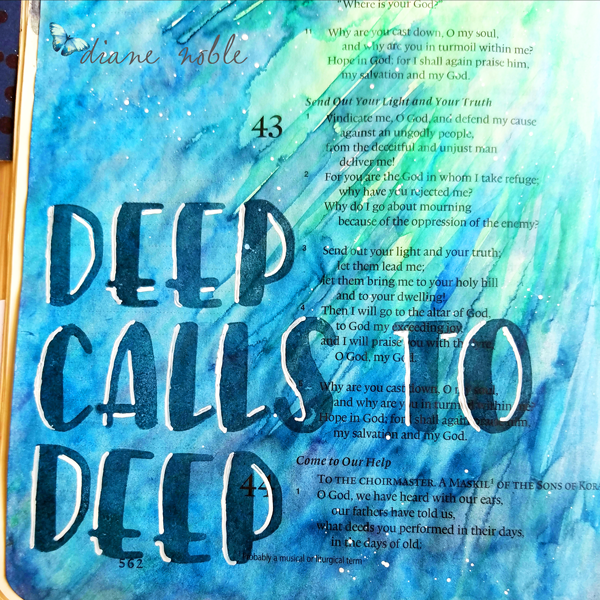 "Where is your God?"
11 Why are you cast down, O my soul,
and why are you in turmoil within me?
Hope in God; for I shall again praise him,
my salvation and my God.
diane noble
Send Out Your Light and Your Truth
43
1 Vindicate me, O God, and defend my cause
against an ungodly people,
from the deceitful and unjust man
deliver me!
2 For you are the God in whom I take refuge;
why have you rejected me?
Why do I go about mourning
because of the oppression of the enemy?
3 Send out your light and your truth;
let them lead me;
let them bring me to your holy hill
and to your dwelling!
4 Then I will go to the altar of God,
to God my exceeding joy,
and I will praise you with the lyre,
O God, my God.
Why are you cast down, O my soul,
and why are you in turmoil within me?
Hope in God; for I shall again praise him,
my salvation and my God.
DEEP
CALLS TO
DEEP
Come to Our Help
44
TO THE CHOIRMASTER. A MASKIL¹ OF THE SONS OF
1 O God, we have heard with our ears,
our fathers have told us,
what deeds you performed in their days,
in the days of old:
562
Probably a musical or liturgical term